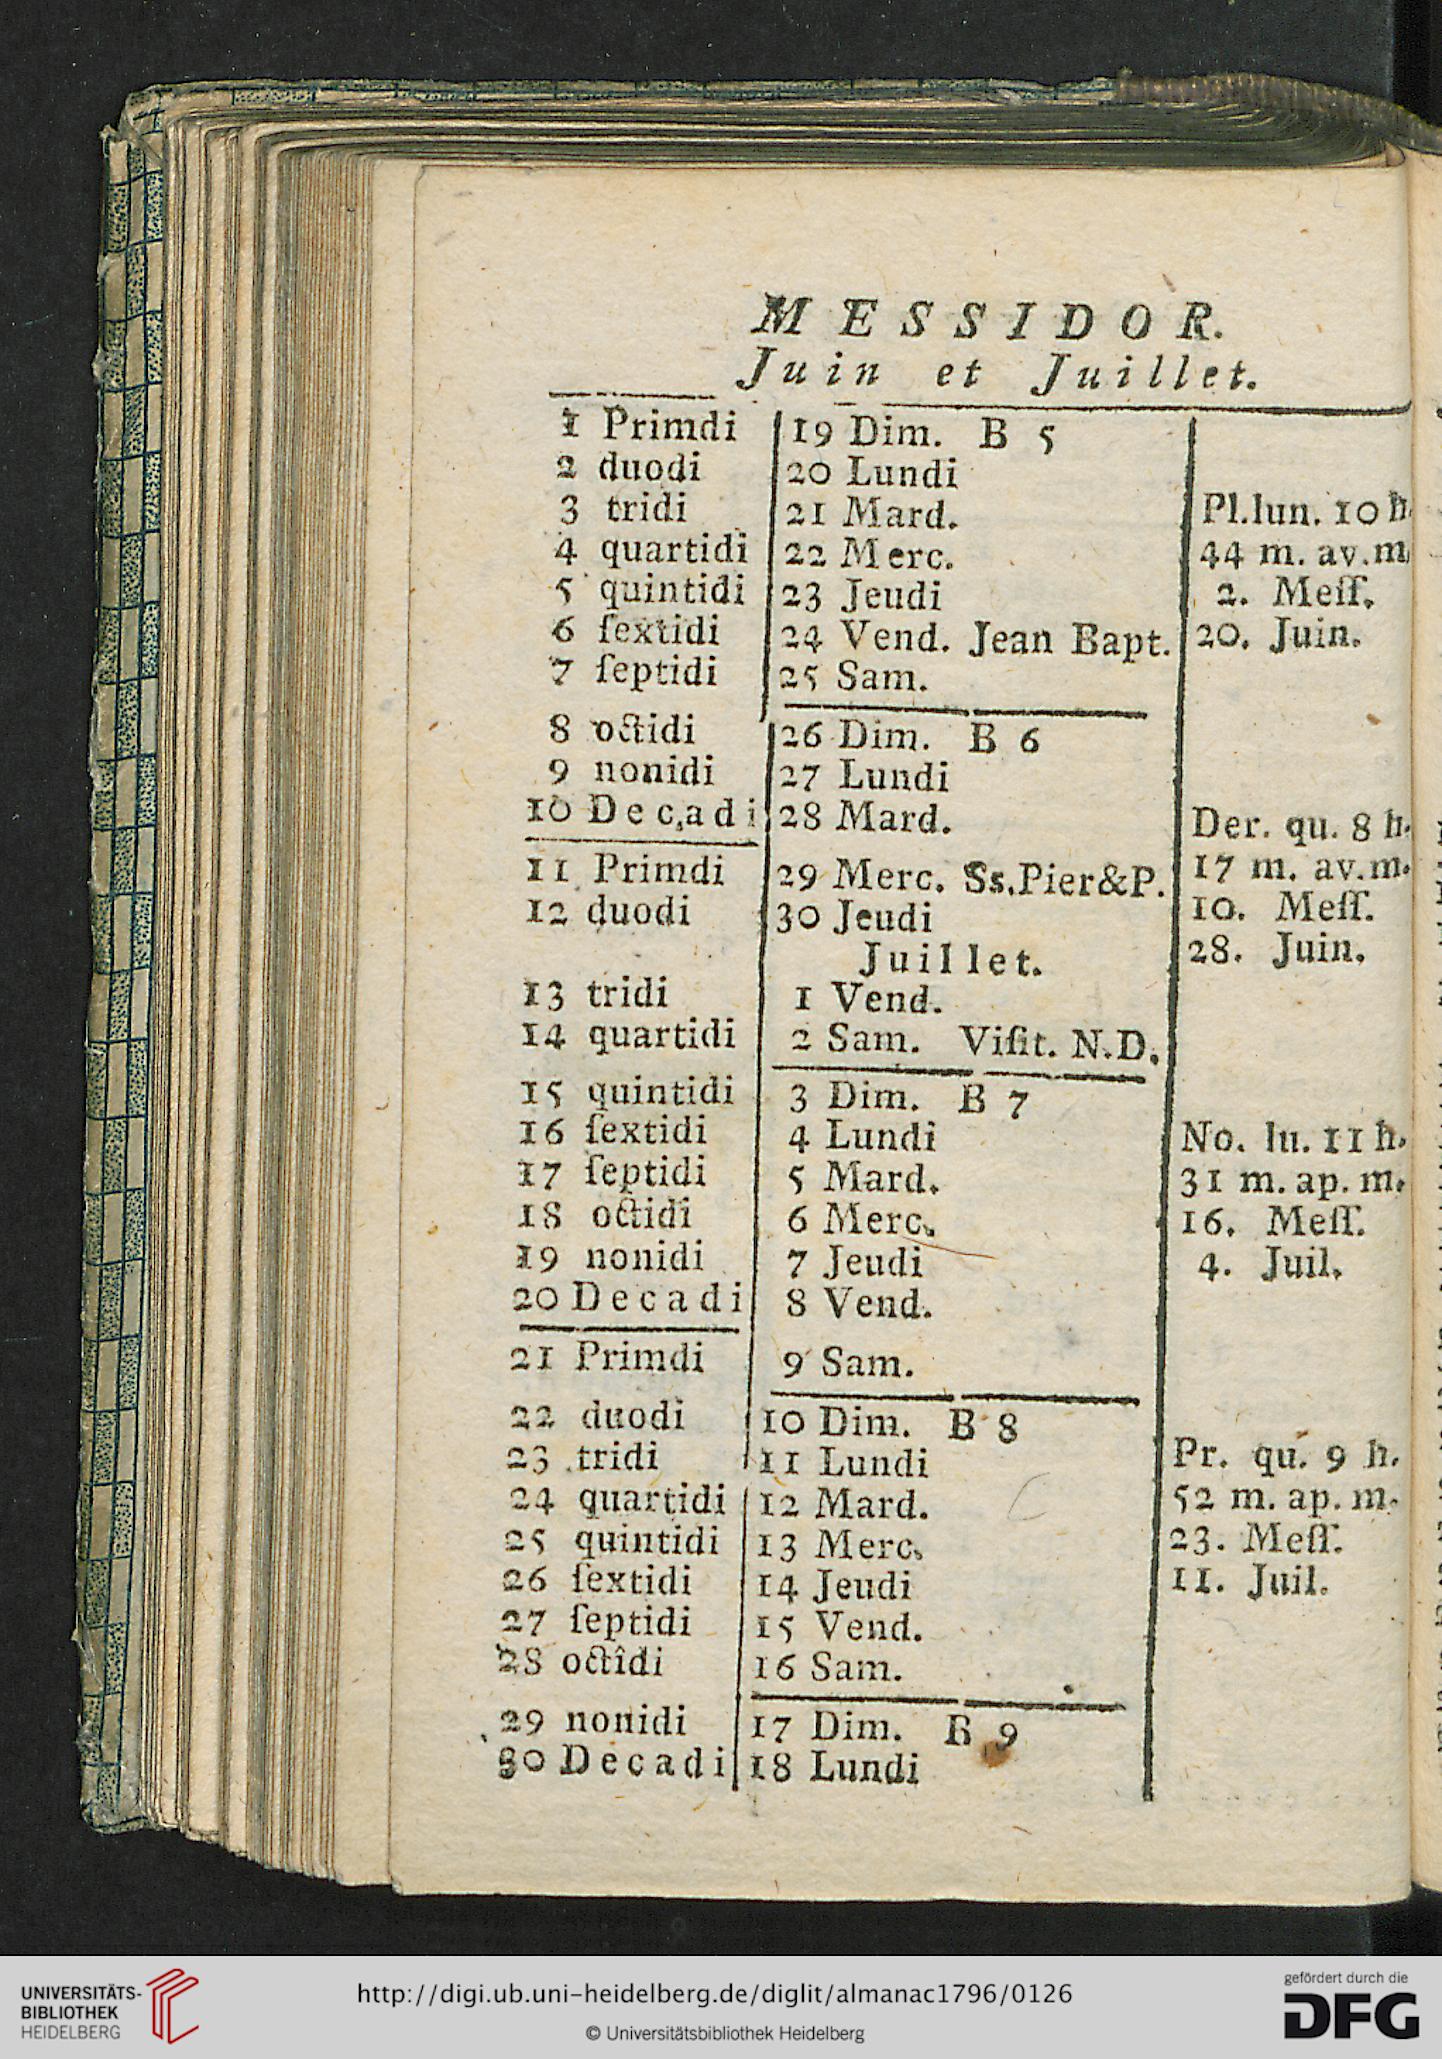 MESSIDOR.
Juin et Juillet.
1 Primdi 19 Dim. B 5
2 duodi 20 Lundi
3 tridi 21 Mard. Pl.lun. 10 h.
4 quartidi 22 Merc. 44 m. av.m
5 quintidi 23 Jeudi 2. Meſſ.
6 ſextidi 24 Vend. Jean Bapt. 20. Juin.
7 ſeptidi 25 Sam.
8 octidi 26 Dim. B 6
9 nonidi 27 Lundi
10 Decadi 28 Mard. Der. qu. 8 h.
11 Primdi 29 Merc. Ss.Pier&P. 17 m. av.m.
12 duodi 30 Jeudi 10. Meſſ.
Juillet. 28. Juin.
13 tridi 1 Vend.
14 quartidi 2 Sam. Viſit. N.D.
15 quintidi 3 Dim. B 7
16 ſextidi 4 Lundi No. lu. 11 h.
17 ſeptidi 5 Mard. 31 m. ap. m.
18 octidi 6 Merc. 16. Meſſ.
19 nonidi 7 Jeudi 4. Juil.
20 Decadi 8 Vend.
21 Primdi 9 Sam.
22 duodi 10 Dim. B 8
23 tridi 11 Lundi Pr. qu. 9 h.
24 quartidi 12 Mard. 52 m. ap. m.
25 quintidi 13 Merc. 23. Meſſ.
26 ſextidi 14 Jeudi 11. Juil.
27 ſeptidi 15 Vend.
28 octîdi 16 Sam.
29 nonidi 17 Dim. B 9
30 Decadi 18 Lundi
UNIVERSITÄTS-
BIBLIOTHEK
HEIDELBERG
http://digi.ub.uni-heidelberg.de/diglit/almanac1796/0126
© Universitätsbibliothek Heidelberg
gefördert durch die
DFG